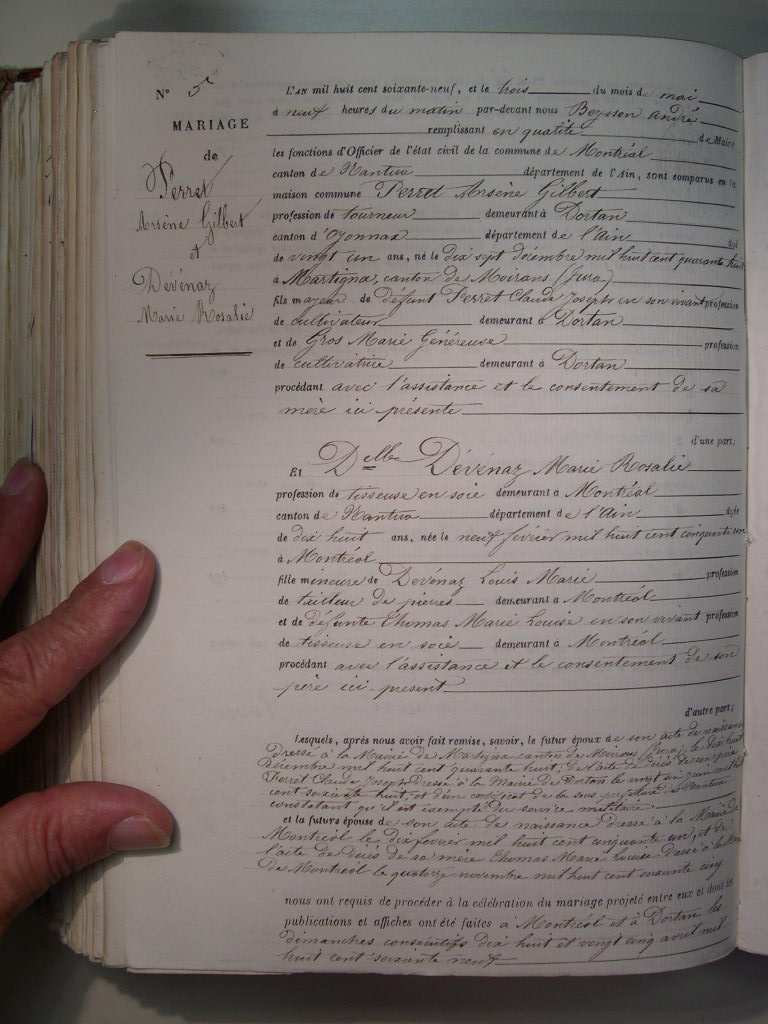 N° 5
MARIAGE
de
Perret
Arsène Gilbert
et
Dévénaz
Marie Rosalie
L'AN mil huit cent soixante-neuf, et le trois du mois de mai
à neuf heures du matin par-devant nous André
remplissant en qualité de Maire
les fonctions d'Officier de l'état civil de la commune de Montréal
canton de Nantua département de l'Ain, sont comparus en la
maison commune Perret Arsène Gilbert
profession de tourneur demeurant à Dortan
canton d'Oyonnax département de l'Ain âgé
de vingt un ans, né le dix sept décembre mil huit cent quarante huit
à Martigna, canton de Moirans (Jura)
fils majeur de défunt Perret Claude Joseph en son vivant profession
de cultivateur demeurant à Dortan
et de Gros Marie Généreuse profession
de cultivatrice demeurant à Dortan
procédant avec l'assistance et le consentement de sa
mère ici présente
d'une part,
Et Delle Dévénaz Marie Rosalie
profession de tisseuse en soie demeurant à Montréal
canton de Nantua département de l'Ain âgée
de dix huit ans, née le neuf février mil huit cent cinquante un
à Montréal
fille mineure de Dévénaz Louis Marie profession
de tailleur de pierres demeurant à Montréal
et de défunte Thomas Marie Louise en son vivant profession
de tisseuse en soie demeurant à Montréal
procédant avec l'assistance et le consentement de son
père ici présent
d'autre part;
Lesquels, après nous avoir fait remise, savoir, le futur époux de son acte de naissance
dressé à la Mairie de Martigna canton de Moirans (Jura), le dix huit
décembre mil huit cent quarante huit, de l'acte de décès de son père
Perret Claude Joseph dressé à la Mairie de Dortan le vingt un
cent soixante huit, et d'un certificat de la sous préfecture de Nantua
constatant qu'il est exempté du service militaire
et la future épouse de son acte de naissance dressé à la Mairie de
Montréal le dix février mil huit cent cinquante un, et de
l'acte de décès de sa mère Thomas Marie Louise dressé à la Mairie
de Montréal le quatorze novembre mil huit cent soixante cinq
nous ont requis de procéder à la célébration du mariage projeté entre eux et dont les
publications et affiches ont été faites à Montréal et à Dortan les
dimanches consécutifs dix huit et vingt cinq avril mil
huit cent soixante neuf